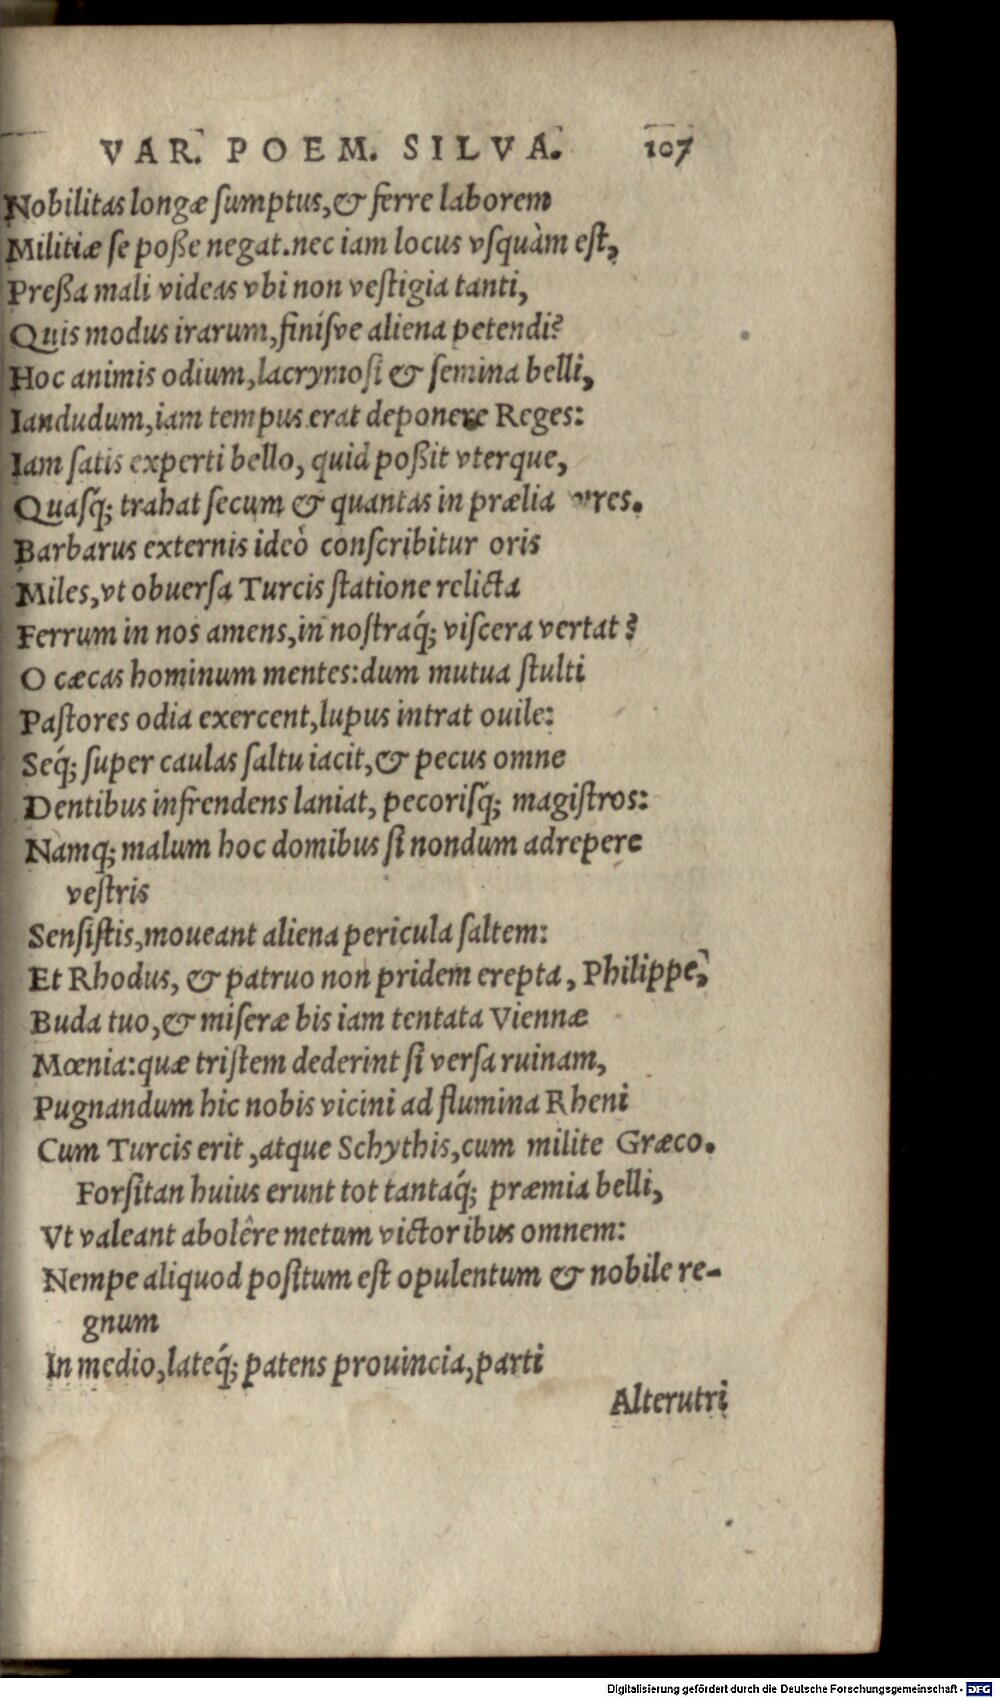 VAR. POEM. SILVA. 107
Nobilitas longæ ſumptus,& ferre laborem
Militiæ ſe poße negat.nec iam locus vſquàm eſt,
Preßa mali videas vbi non veſtigia tanti,
Quis modus irarum,finiſve aliena petendi?
Hoc animis odium,lacrymoſi & ſemina belli,
Iandudum,iam tempus erat deponere Reges:
Iam ſatis experti bello, quid poßit vterque,
Quaſq́; trahat ſecum & quantas in prælia vres.
Barbarus externis ideò conſcribitur oris
Miles,vt obuerſa Turcis ſtatione relicta
Ferrum in nos amens,in noſtraq́; viſcera vertat?
O cæcas hominum mentes:dum mutua ſtulti
Paſtores odia exercent,lupus intrat ouile:
Seq́; ſuper caulas ſaltu iacit,& pecus omne
Dentibus infrendens laniat, pecoriſq́; magiſtros:
Namq́; malum hoc domibus ſi nondum adrepere
veſtris
Senſiſtis,moueant aliena pericula ſaltem:
Et Rhodus, & patruo non pridem erepta, Philippe,
Buda tuo,& miſeræ bis iam tentata Viennæ
Mœnia:quæ triſtem dederint ſi verſa ruinam,
Pugnandum hic nobis vicini ad flumina Rheni
Cum Turcis erit ,atque Schythis,cum milite Græco.
Forſitan huius erunt tot tantaq́; præmia belli,
Vt valeant abolêre metum victoribus omnem:
Nempe aliquod poſitum eſt opulentum & nobile re-
gnum
In medio,lateq́; patens prouincia,parti
Alterutri
Digitalisierung gefördert durch die Deutsche Forschungsgemeinschaft - DFG